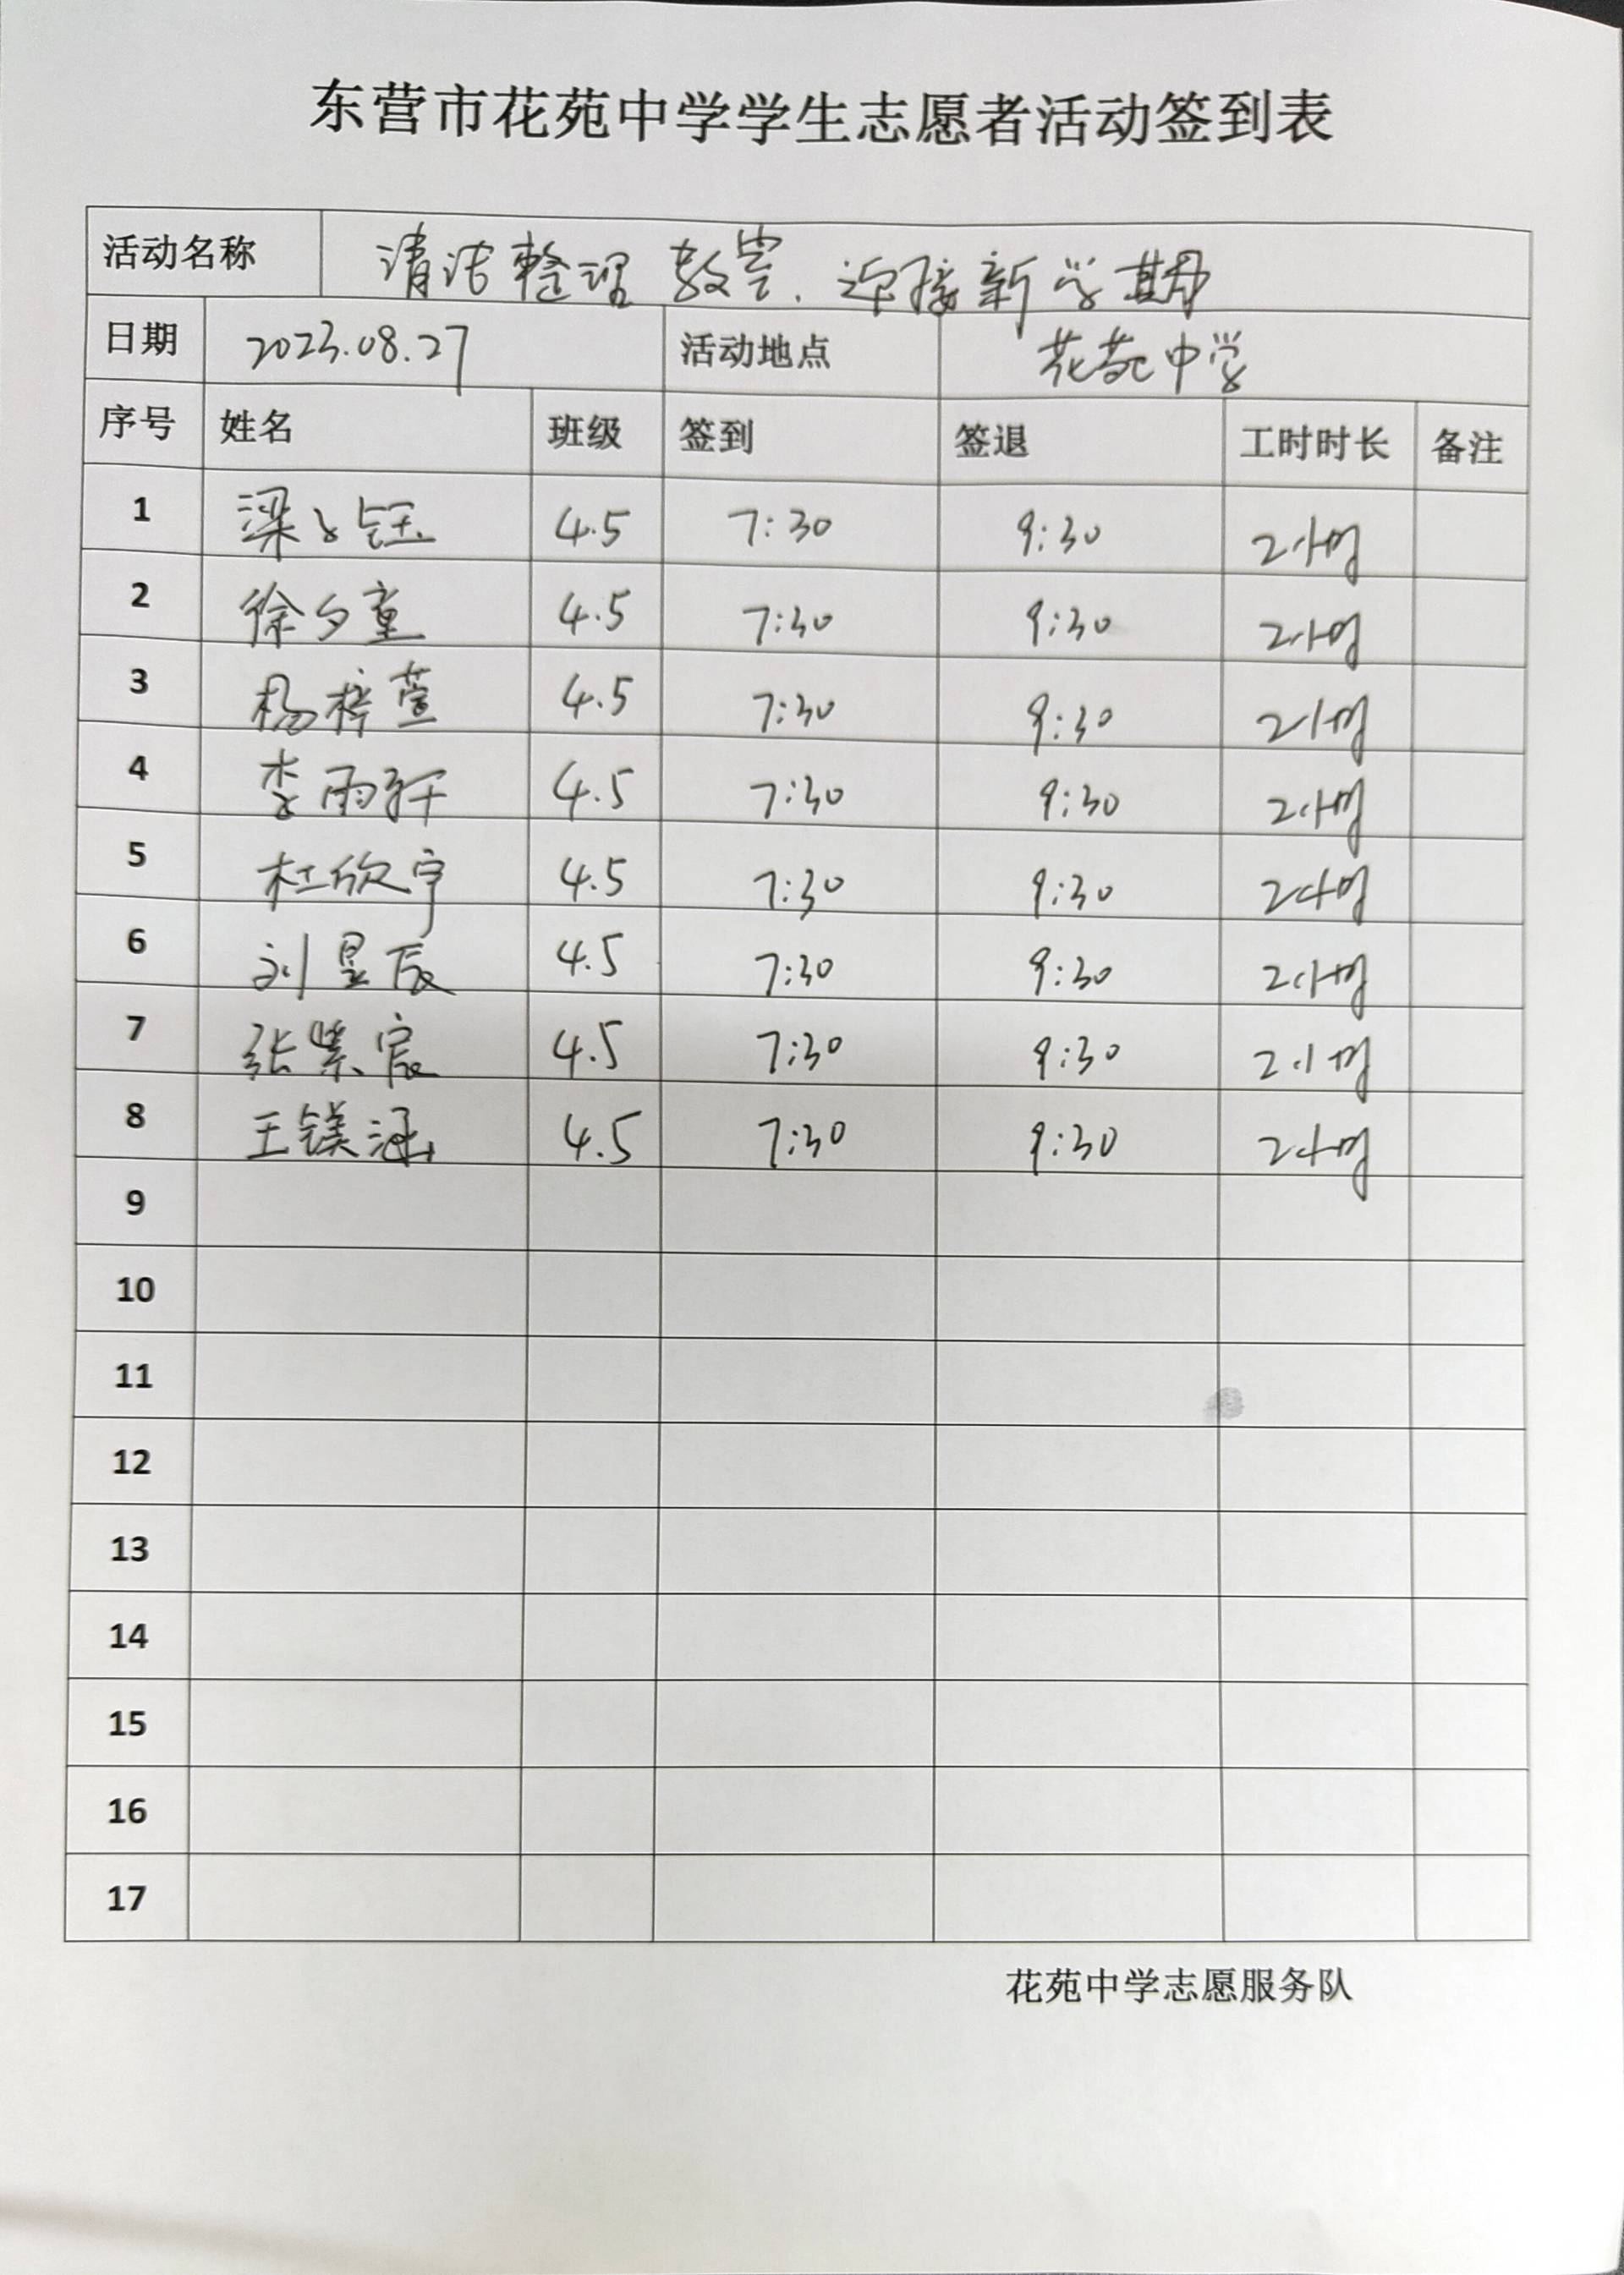 东营市花苑中学学生志愿者活动签到表
活动名称 清洁整理教室.迎接新学期
日期 2023.08.27 活动地点 花苑中学
序号 姓名 班级 签到 签退 工时时长 备注
1 梁子钰 4.5 7:30 9:30 2小时
2 徐夕童 4.5 7:30 9:30 2小时
3 杨梓萱 4.5 7:30 9:30 2小时
4 李雨轩 4.5 7:30 9:30 2小时
5 杜欣宇 4.5 7:30 9:30 2小时
6 刘昱辰 4.5 7:30 9:30 2小时
7 张紫宸 4.5 7:30 9:30 2小时
8 王镁涵 4.5 7:30 9:30 2小时
9
10
11
12
13
14
15
16
17
花苑中学志愿服务队